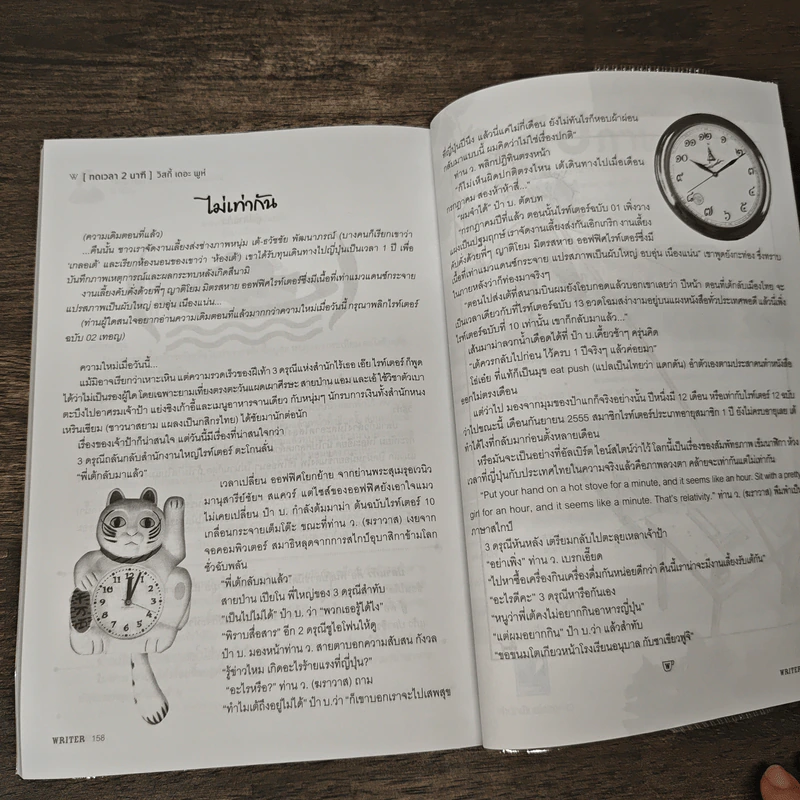 W [ ทดเวลา 2 นาที ] วิสกี้ เดอะ พูห์
ไม่เท่ากัน
(ความเดิมตอนที่แล้ว)
...คืนนั้น ชาวเราจัดงานเลี้ยงส่งช่างภาพหนุ่ม เต้-ธวัชชัย พัฒนาภรณ์ (บางคนก็เรียกเขาว่า
'เกลอเต้' และเรียกห้องนอนของเขาว่า 'ห้องเต้') เขาได้รับทุนเดินทางไปญี่ปุ่นเป็นเวลา 1 ปี เพื่อ
บันทึกภาพเหตุการณ์และผลกระทบหลังเกิดสึนามิ
งานเลี้ยงคับคั่งด้วยพี่ๆ ญาติโยม มิตรสหาย ออฟฟิศไรท์เตอร์ซึ่งมีเนื้อที่เท่าแมวแดนซ์กระจาย
แปรสภาพเป็นผับใหญ่ อบอุ่น เนืองแน่น...
(ท่านผู้ใดสนใจอยากอ่านความเดิมตอนที่แล้วมากกว่าความใหม่เมื่อวันนี้ กรุณาพลิกไรท์เตอร์
ฉบับ 02 เทอญ)
ความใหม่เมื่อวันนี้...
แม้มิอาจเรียกว่าเหาะเหิน แต่ความรวดเร็วของฝีเท้า 3 ดรุณีแห่งสำนักไร้เธอ เอ๊ย ไรท์เตอร์ ก็พูด
ได้ว่าไม่เป็นรองผู้ใด โดยเฉพาะยามเที่ยงตรงตะวันแผดเผาศีรษะ สายป่าน แอม และเอ๋ ใช้วิชาตัวเบา
ตะบึงไปอาศรมเจ้าป้า แย่งชิงเก้าอี้และเมนูอาหารจานเดียว กับหนุ่มๆ นักรบการเงินทั้งสำนักหนง
เหรินเซียม (ชาวนาสยาม แผลงเป็นกสิกรไทย) ได้ชัยมานักต่อนัก
เรื่องของเจ้าป้าก็น่าสนใจ แต่วันนี้มีเรื่องที่น่าสนใจกว่า
3 ดรุณีถลันกลับสำนักงานใหญ่ไรท์เตอร์ ตะโกนลั่น
"พี่เต้กลับมาแล้ว"
เวลาเปลี่ยน ออฟฟิศโยกย้าย จากย่านพระสุเมรุอเวนิว
มานุสารีย์ชัยฯ สแควร์ แต่ไซส์ของออฟฟิศยังเอาใจแมว
ไม่เคยเปลี่ยน ป๋า บ. กำลังต้มมาม่า ต้นฉบับไรท์เตอร์ 10
เกลื่อนกระจายเต็มโต๊ะ ขณะที่ท่าน ว. (ฆราวาส) เงยจาก
จอคอมพิวเตอร์ สมาธิหลุดจากการสไกป์อุบาสิกาข้ามโลก
ชั่วฉับพลัน
"พี่เต้กลับมาแล้ว"
สายป่าน เปียโน พี่ใหญ่ของ 3 ดรุณีสำทับ
"เป็นไปไม่ได้" ป๋า บ. ว่า "พวกเธอรู้ได้ไง"
"พิราบสื่อสาร" อีก 2 ดรุณีชูไอโฟนให้ดู
ป๋า บ. มองหน้าท่าน ว. สายตาบอกความสับสน กังวล
"รู้ข่าวไหม เกิดอะไรร้ายแรงที่ญี่ปุ่น?"
"อะไรหรือ?" ท่าน ว. (ฆราวาส) ถาม
"ทำไมเต้ถึงอยู่ไม่ได้" ป๋า บ.ว่า "ก็เขาบอกเราจะไปเสพสุข
WRITER 158
ที่ญี่ปุ่นปีนึง แล้วนี่แค่ไม่กี่เดือน ยังไม่ทันไรก็หอบผ้าผ่อน
กลับมาแบบนี้ ผมคิดว่าไม่ใช่เรื่องปกติ"
ท่าน ว. พลิกปฏิทินตรงหน้า
"ก็ไม่เห็นผิดปกติตรงไหน เต้เดินทางไปเมื่อเดือน
กรกฎาคม สองห้าห้าสี่..."
"ผมจำได้" ป๋า บ. ตัดบท
"กรกฎาคมปีที่แล้ว ตอนนั้นไรท์เตอร์ฉบับ 01 เพิ่งวาง
แผงเป็นปฐมฤกษ์ เราจัดงานเลี้ยงส่งกันเอิกเกริก งานเลี้ยง
คับคั่งด้วยพี่ๆ ญาติโยม มิตรสหาย ออฟฟิศไรท์เตอร์ซึ่งมี
เนื้อที่เท่าแมวแดนซ์กระจาย แปรสภาพเป็นผับใหญ่ อบอุ่น เนืองแน่น" เขาพูดยังกะท่อง ซึ่งทราบ
ในภายหลังว่าก็ท่องมาจริงๆ
"ตอนไปส่งเต้ที่สนามบินผมยังโอบกอดแล้วบอกเขาเลยว่า ปีหน้า ตอนที่เต้กลับเมืองไทย จะ
เป็นเวลาเดียวกับที่ไรท์เตอร์ฉบับ 13 อวดโฉมสง่างามอยู่บนแผงหนังสือทั่วประเทศพอดี แล้วนี่เพิ่ง
ไรท์เตอร์ฉบับที่ 10 เท่านั้น เขาก็กลับมาแล้ว..."
เส้นมาม่าลวกน้ำเดือดได้ที่ ป๋า บ.เคี้ยวช้าๆ ครุ่นคิด
"เต้ควรกลับไปก่อน ไว้ครบ 1 ปีจริงๆ แล้วค่อยมา"
โธ่เอ๋ย ที่แท้ก็เป็นมุข eat push (แปลเป็นไทยว่า แดกดัน) อำตัวเองตามประสาคนทำหนังสือ
ออกไม่ตรงเดือน
แต่ว่าไป มองจากมุมของป๋าแกก็จริงอย่างนั้น ปีหนึ่งมี 12 เดือน หรือเท่ากับไรท์เตอร์ 12 ฉบับ
ว่าไปขณะนี้ เดือนกันยายน 2555 สมาชิกไรท์เตอร์ประเภทอายุสมาชิก 1 ปี ยังไม่ครบอายุเลย เต้
ทำได้ไงที่กลับมาก่อนตั้งหลายเดือน
หรือมันจะเป็นอย่างที่อัลเบิร์ต ไอน์สไตน์ว่าไว้ โลกนี้เป็นเรื่องของสัมพัทธภาพ เข็มนาฬิกา ห้วง
เวลาที่ญี่ปุ่นกับประเทศไทยในความจริงแล้วคือภาพลวงตา คล้ายจะเท่ากันแต่ไม่เท่ากัน
"Put your hand on a hot stove for a minute, and it seems like an hour. Sit with a pretty
girl for an hour, and it seems like a minute. That's relativity." ท่าน ว. (ฆราวาส) พิมพ์มาเป็น
ภาษาสไกป์
3 ดรุณีหันหลัง เตรียมกลับไปตะลุยเหลาเจ้าป้า
"อย่าเพิ่ง" ท่าน ว. เบรกเอี๊ยด
"ไปหาซื้อเครื่องกินเครื่องดื่มกันหน่อยดีกว่า คืนนี้เราน่าจะมีงานเลี้ยงรับเต้กัน"
"อะไรดีคะ" 3 ดรุณีหารือกันเอง
"หนูว่าพี่เต้คงไม่อยากกินอาหารญี่ปุ่น"
"แต่ผมอยากกิน" ป๋า บ.ว่า แล้วสำทับ
"ขอขนมโตเกียวหน้าโรงเรียนอนุบาล กับชาเขียวพูจิ"
WRITER